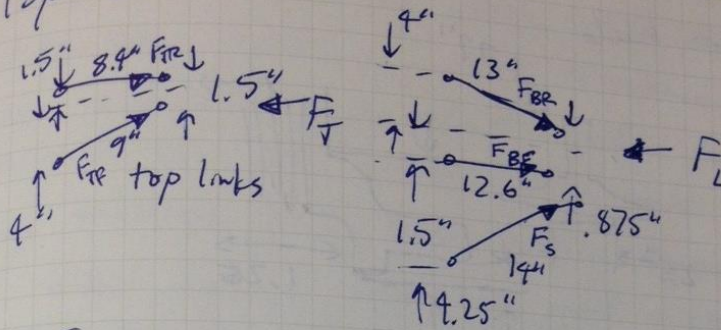 1.5" 8.4" F_TR
1.5"
F_T
9"
F_TF top links
4"
4"
13" F_BR
F_BF
12.6"
F_L
1.5"
F_S
.875"
14"
4.25"